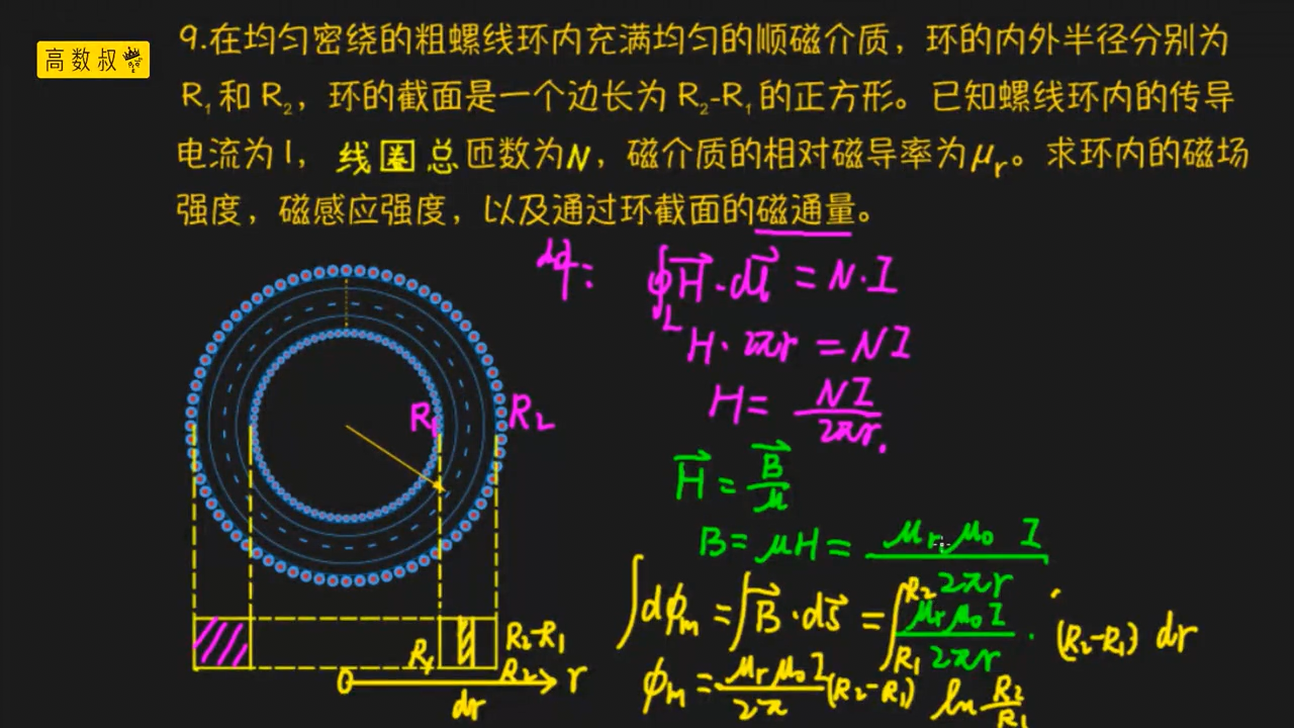 高数叔
9.在均匀密绕的粗螺线环内充满均匀的顺磁介质，环的内外半径分别为
R₁和R₂，环的截面是一个边长为R₂-R₁的正方形。已知螺线环内的传导
电流为I，线圈总匝数为N，磁介质的相对磁导率为μr。求环内的磁场
强度，磁感应强度，以及通过环截面的磁通量。
解： ∮_L H⃗·dl⃗ = N·I
H·2πr = NI
H = NI/2πr.
H⃗ = B⃗/μ
B = μH = μrμ₀ I/2πr
∫dφm = ∫B⃗·dS⃗ = ∫_{R₁}^{R₂} μrμ₀I/2πr · (R₂-R₁) dr
φm = μrμ₀I/2π (R₂-R₁) ln R₂/R₁
R₁
R₂
R₂-R₁
R₁
R₂
O
r
dr